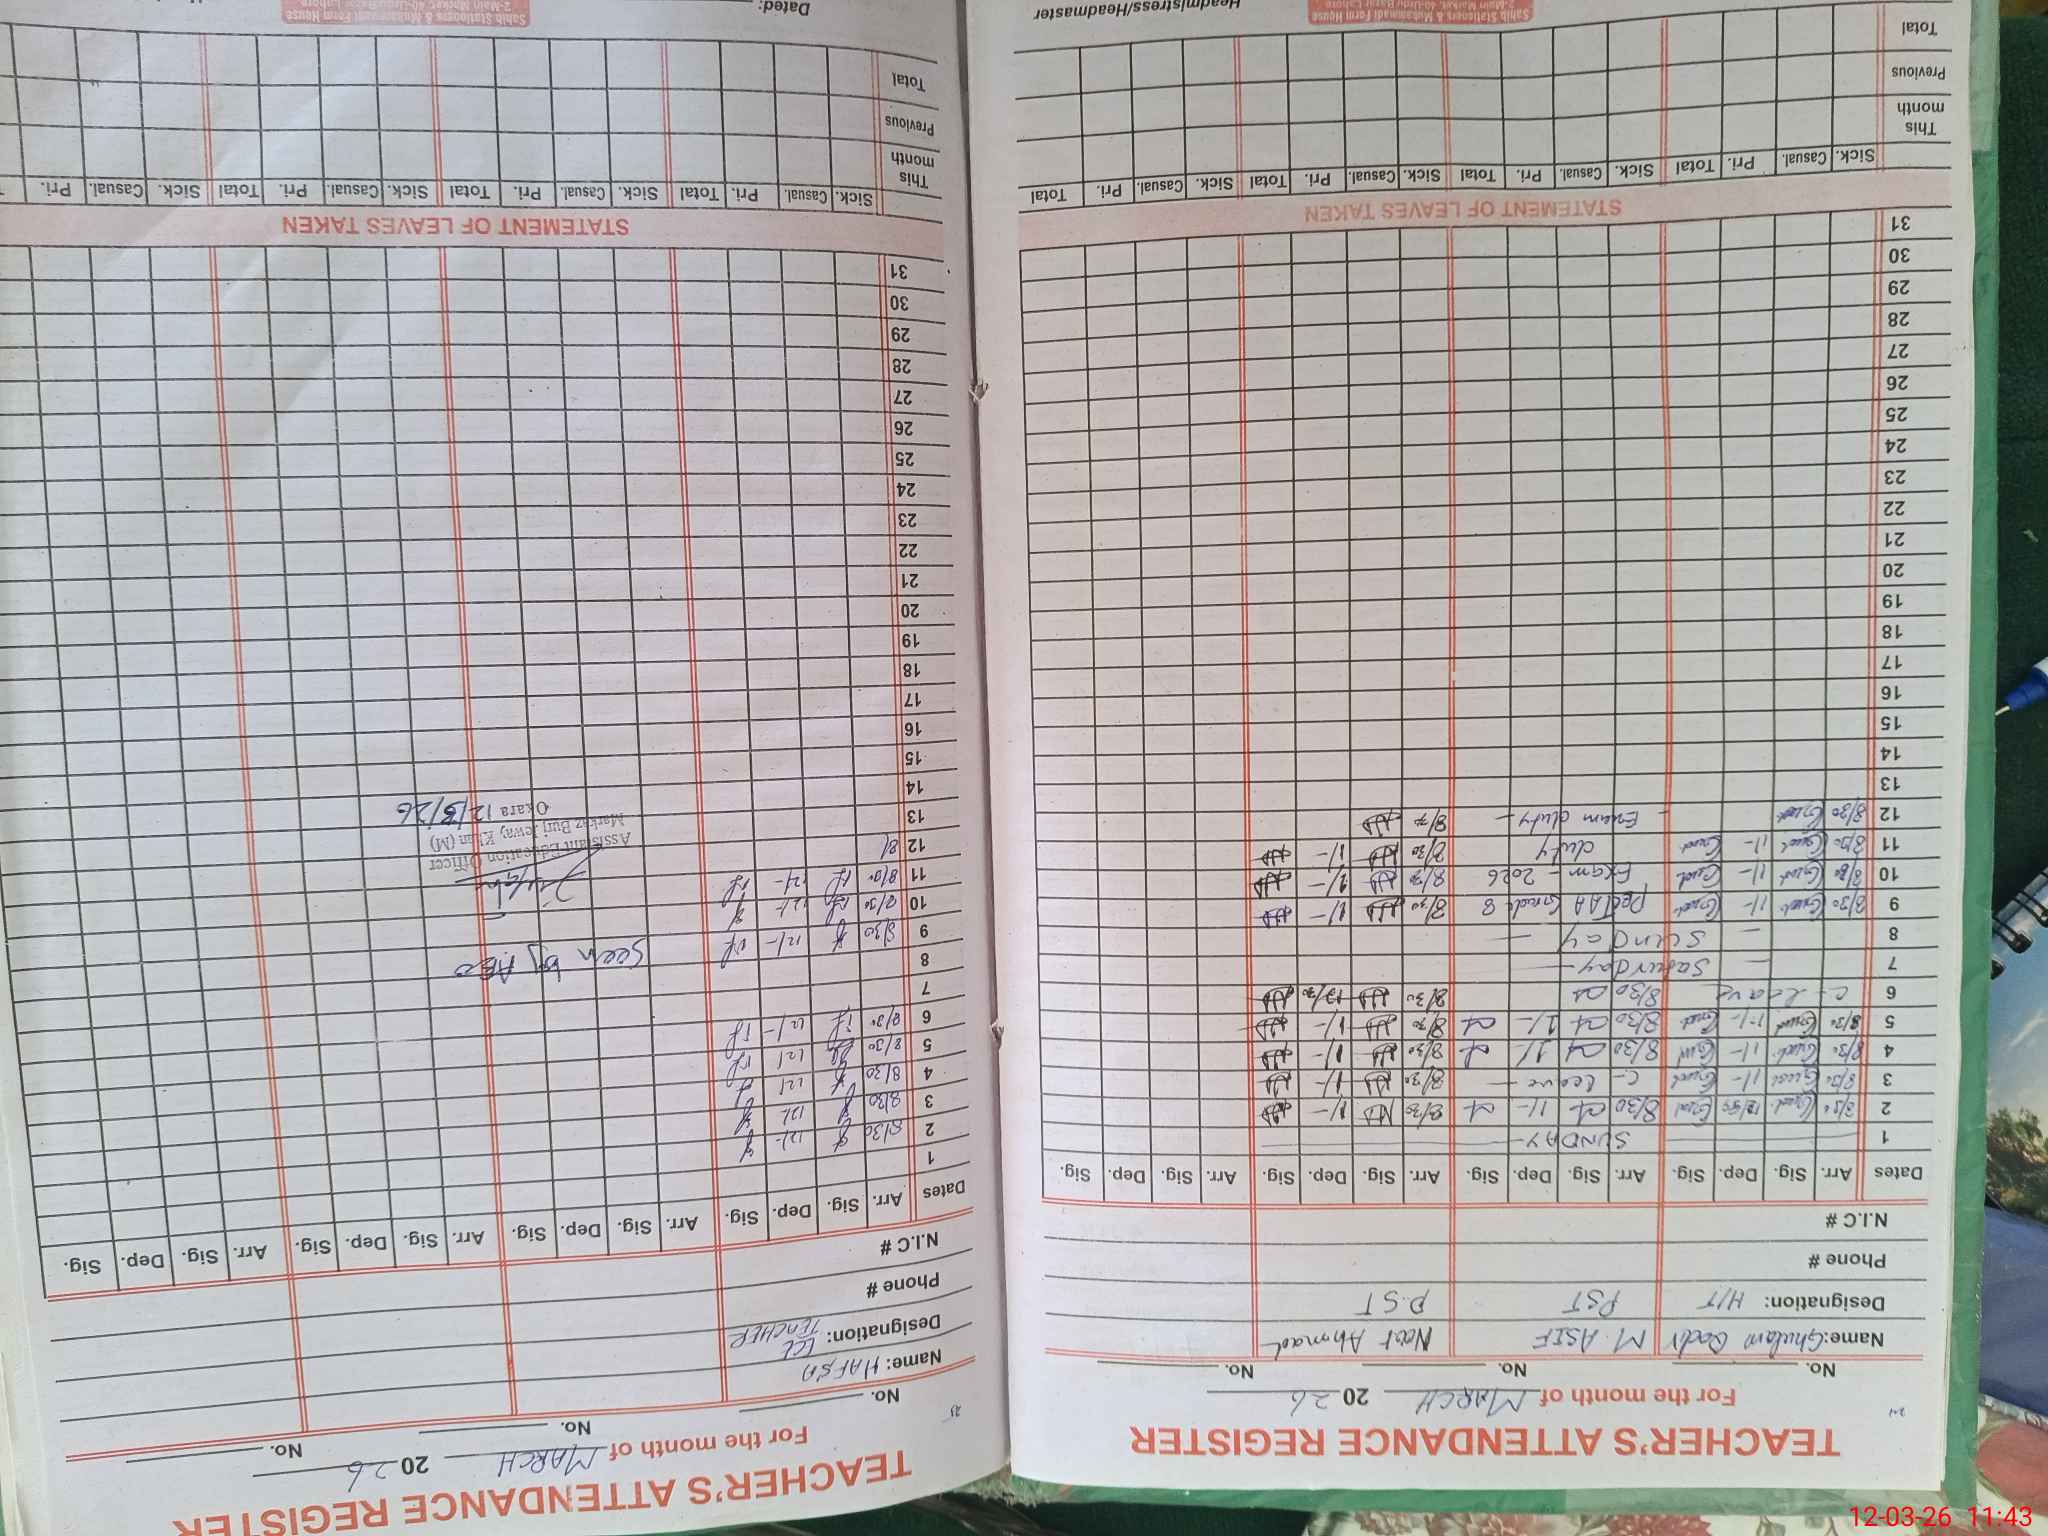 TEACHER'S ATTENDANCE REGISTER
For the month of MARCH 2026
24
No. No. No.
Name: Ghulam M. ASIF Ahmad
Designation: H/T PST P.ST
Phone #
N.I.C #
Dates Arr. Sig. Dep. Sig. Arr. Sig. Dep. Sig. Arr. Sig. Dep. Sig. Arr. Sig. Dep. Sig.
1 SUNDAY
2 8/30 12/30 8/30 1/- 8/30 1/-
3 8/30 1/- C-leave 8/30 1/-
4 8/30 1/- 8/30 1/- 8/30 1/-
5 8/30 1/- 8/30 1/- 8/30 1/-
6 C-leave 8/30 8/30 12/30
7 Saturday
8 SUNDAY
9 8/30 1/- Grade 8 8/30 1/-
10 8/30 1/- Exam - 2026 8/30 1/-
11 8/30 1/- duty 8/30 1/-
12 8/30 - Exam duty -
13
14
15
16
17
18
19
20
21
22
23
24
25
26
27
28
29
30
31
STATEMENT OF LEAVES TAKEN
Sick. Casual. Pri. Total Sick. Casual. Pri. Total Sick. Casual. Pri. Total Sick. Casual. Pri. Total
This month
Previous
Total
Headmistress/Headmaster
Sahib Stationers & Muhammadi Form House
2-Main Market, 40-Urdu Bazar Lahore
TEACHER'S ATTENDANCE REGISTER
For the month of MARCH 2026
25
No. No. No.
Name: HAFSA
Designation: ECE TEACHER
Phone #
N.I.C #
Dates Arr. Sig. Dep. Sig. Arr. Sig. Dep. Sig. Arr. Sig. Dep. Sig. Arr. Sig. Dep. Sig.
1
2 8/30 12/-
3 8/30 12/
4 8/30 12/
5 8/30 12/
6 8/30 12/-
7
8
9 8/30 12/- Seen by AEO
10 8/30 12/-
11 8/0 12/-
12 8/
Assistant Education Officer
Markaz Burj Jeway Khan (M)
Okara 12/3/26
13
14
15
16
17
18
19
20
21
22
23
24
25
26
27
28
29
30
31
STATEMENT OF LEAVES TAKEN
Sick. Casual. Pri. Total Sick. Casual. Pri. Total Sick. Casual. Pri. Total Sick. Casual. Pri.
This month
Previous
Total
Dated:
Sahib Stationers & Muhammadi Form House
2-Main Market, 40-Urdu Bazar Lahore
12-03-26 11:43